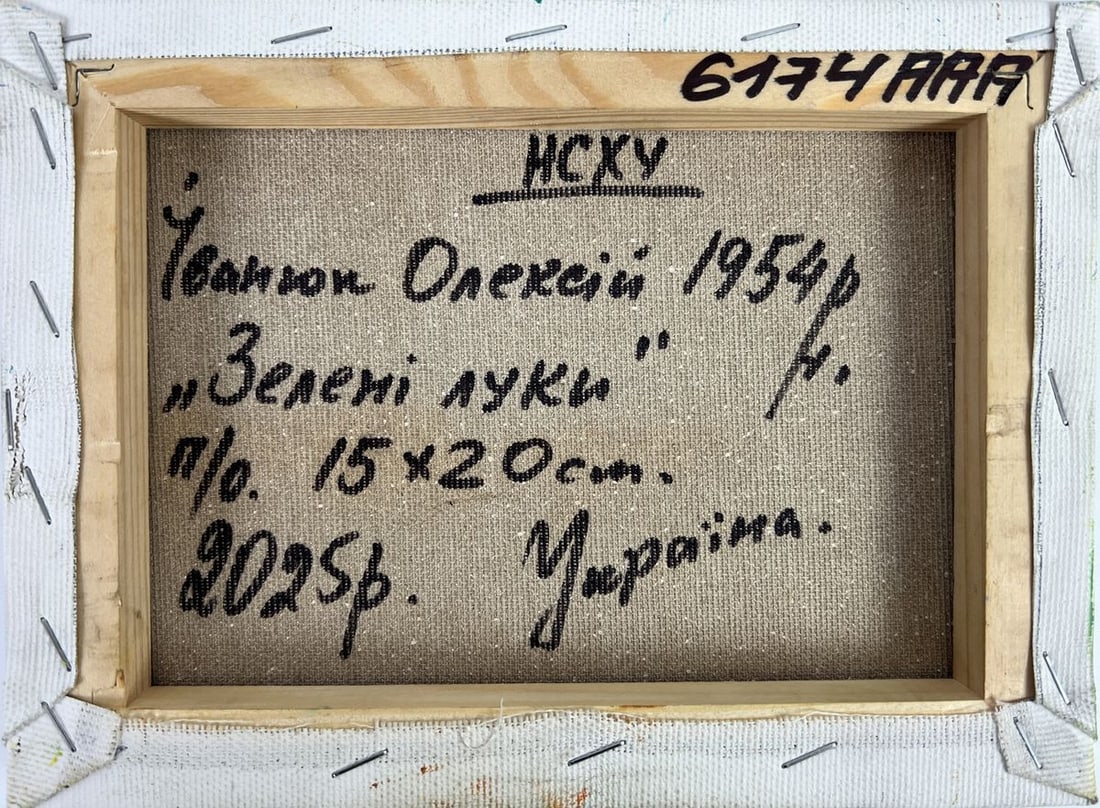 6174AAA
НСХУ
Іванюк Олексій 1954р
н.
„Зелені луки"
п/о. 15×20 ст.
2025р. Україна.